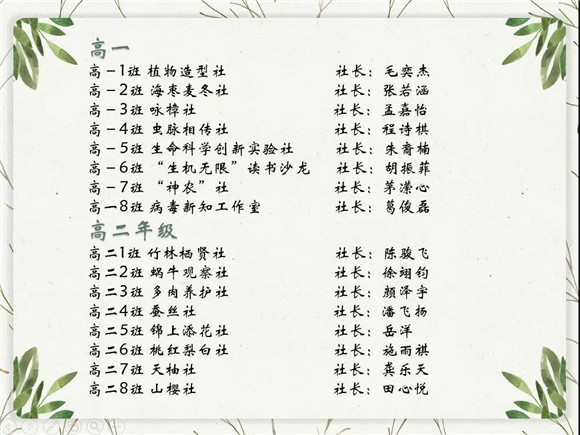 高一
高一1班 植物造型社 社长：毛奕杰
高一2班 海枣麦冬社 社长：张若涵
高一3班 咏樟社 社长：孟嘉怡
高一4班 虫脉相传社 社长：程诗棋
高一5班 生命科学创新实验社 社长：朱裔楠
高一6班 “生机无限”读书沙龙 社长：胡振菲
高一7班 “神农”社 社长：茅潆心
高一8班 病毒新知工作室 社长：葛俊磊
高二年级
高二1班 竹林栖贤社 社长：陈骏飞
高二2班 蜗牛观察社 社长：徐翊钧
高二3班 多肉养护社 社长：颜泽宇
高二4班 蚕丝社 社长：潘飞扬
高二5班 锦上添花社 社长：岳洋
高二6班 桃红梨白社 社长：施雨祺
高二7班 天柚社 社长：龚乐天
高二8班 山樱社 社长：田心悦